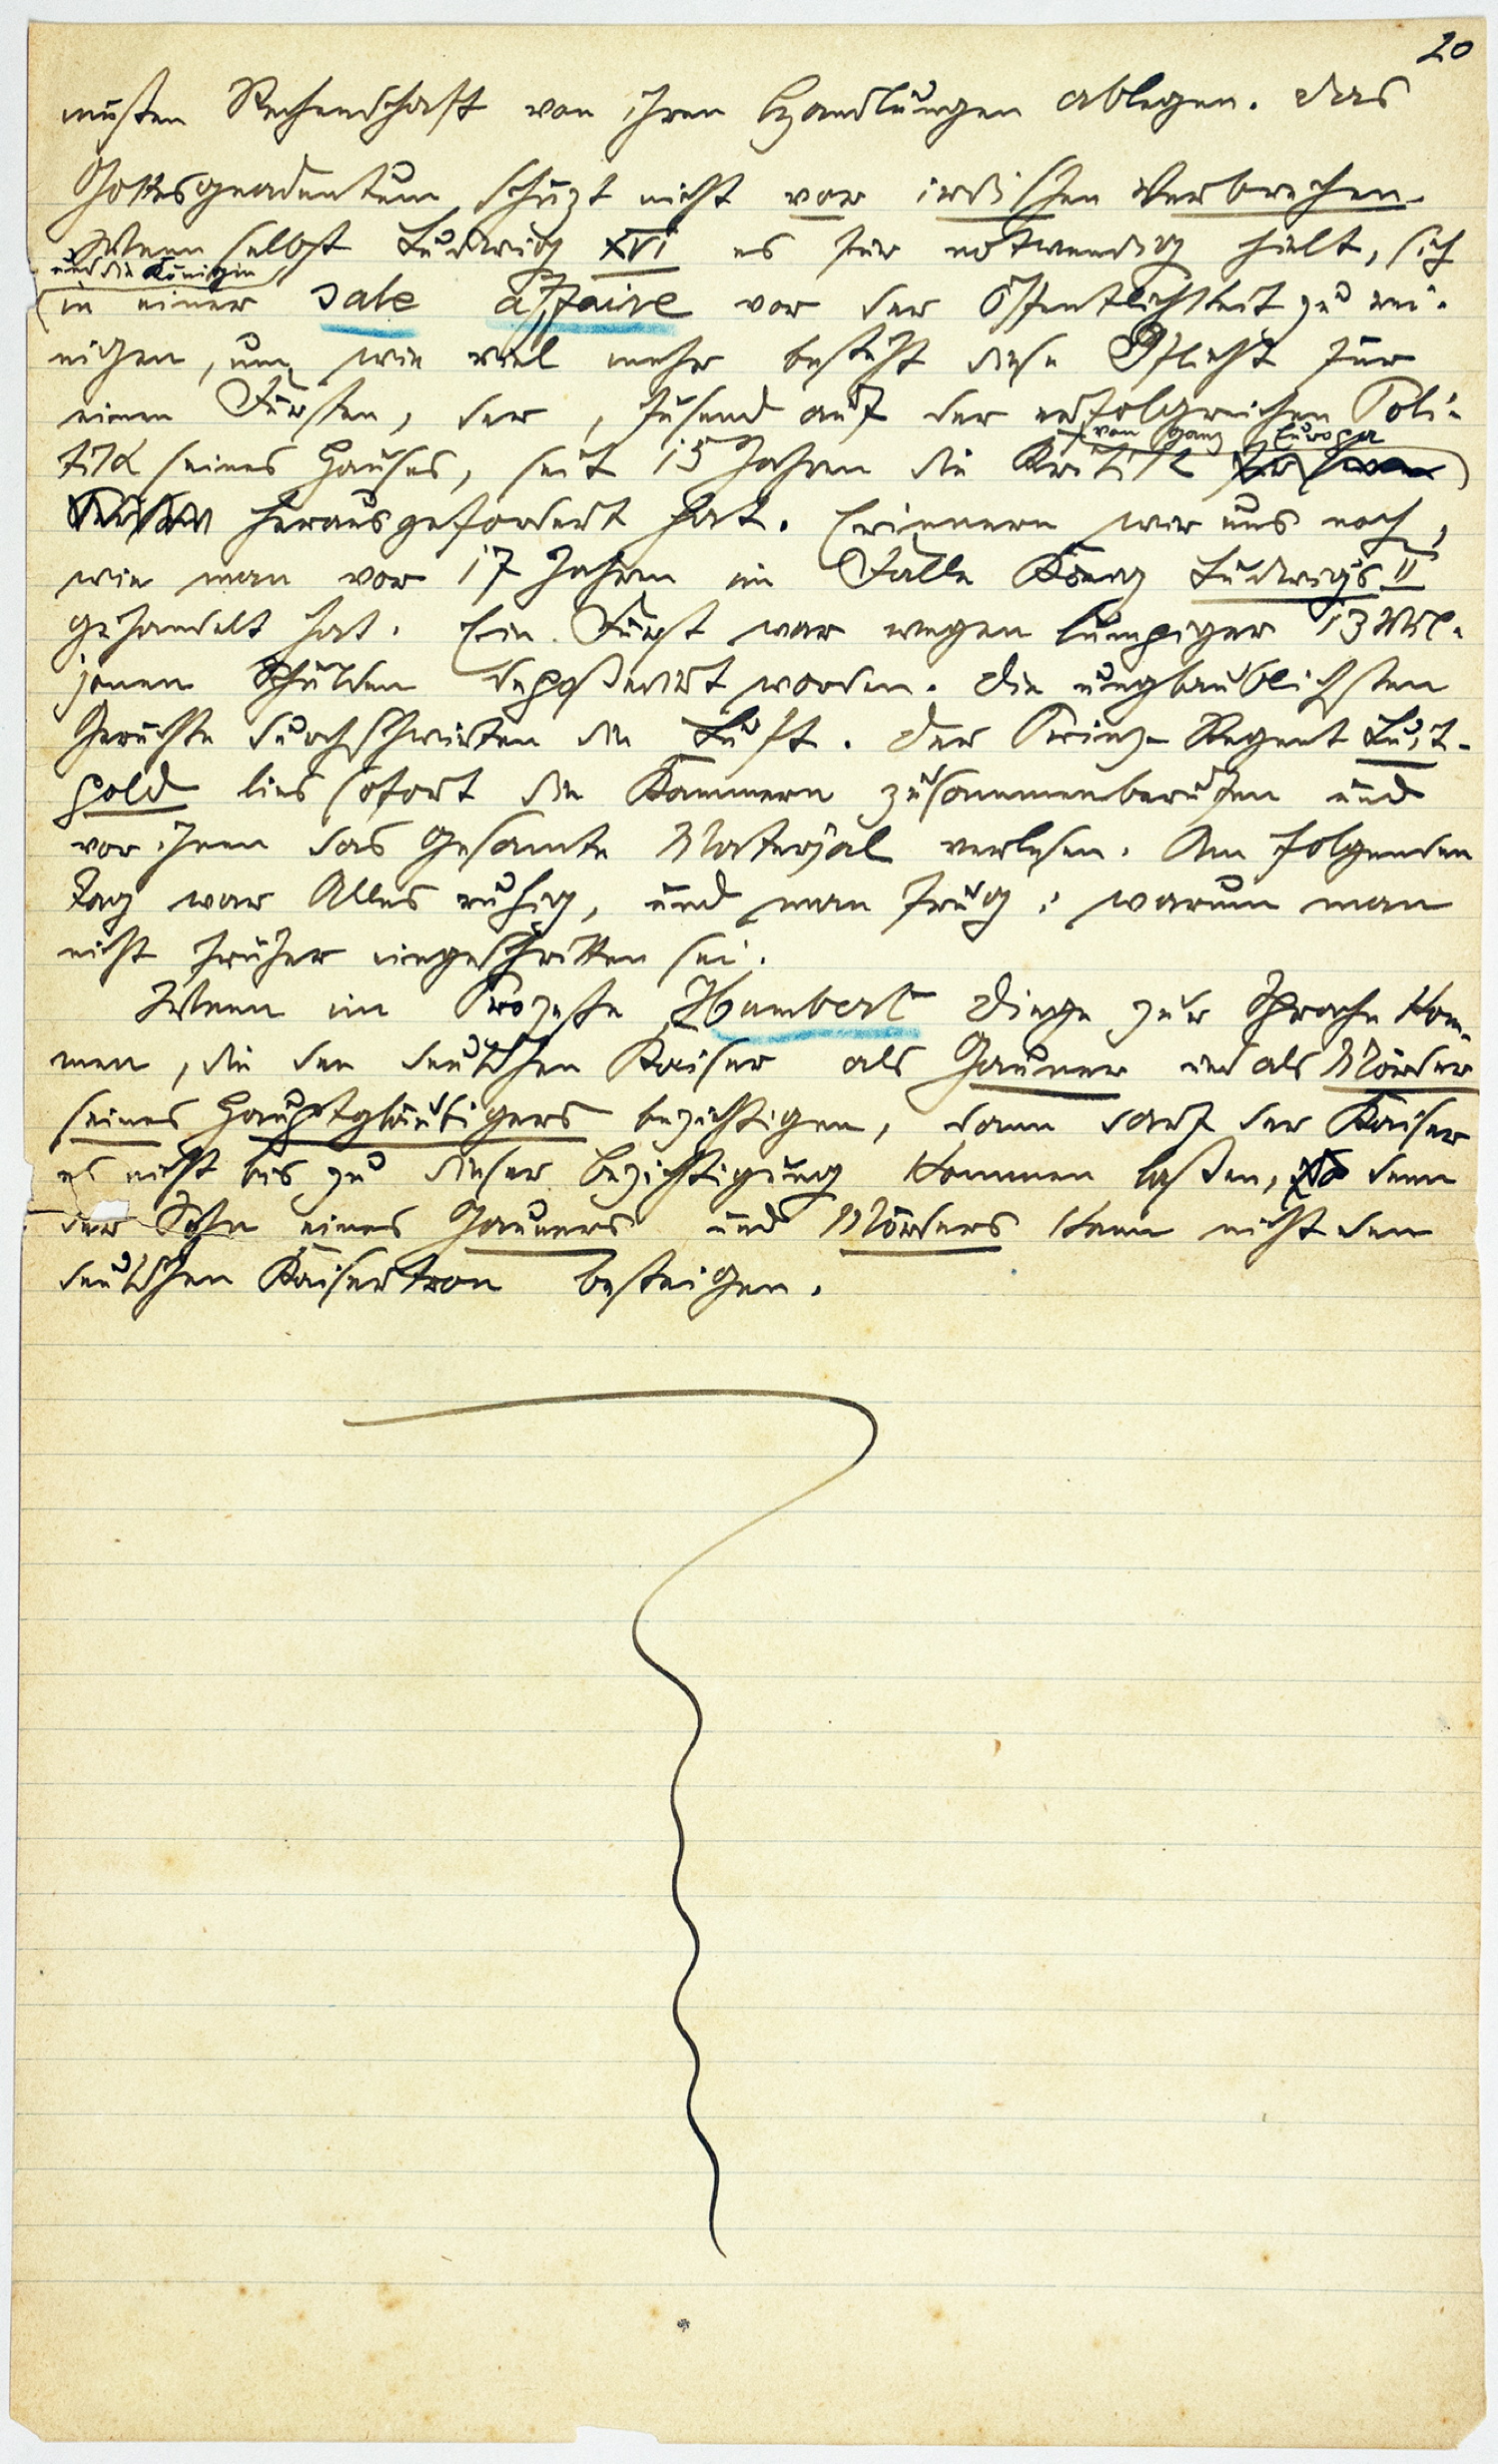 20
musten Rechenschaft von ihren Handlungen ablegen. Das
Gottesgnadentum schüzt nicht vor irdischen Verbrechen.
Wenn selbst Ludwig XVI es für notwendig hielt, sich
und die Königin
in einer sale affaire vor der Öffentlichkeit zu rei-
nigen, um wie viel mehr besteht diese Pflicht für
einen Fürsten, der, fusend auf der erfolgreichen Poli-
von ganz Europa
tik seines Hauses, seit 15 Jahren die Kritik
herausgefordert hat. Erinnern wir uns noch,
wie man vor 17 Jahren im Falle König Ludwig's II
gehandelt hat. Ein Fürst war wegen lumpiger 13 Mil-
jonen Schulden depoßedirt worden. Die unglaublichsten
Gerüchte durchschwirten die Luft. Der Prinz-Regent Luit-
pold lies sofort die Kammern zusammenberufen und
vor ihnen das gesamte Materjal verlesen. Am folgenden
Tag war Alles ruhig, und man frug: warum man
nicht früher eingeschritten sei.
Wenn im Prozeße Humbert Dinge zur Sprache kom-
men, die den deutschen Kaiser als Gauner und als Mörder
seines Hauptgläubigers bezichtigen, dann darf der Kaiser
es nicht bis zu dieser Bezichtigung kommen laßen, denn
der Sohn eines Gauners und Mörders kann nicht den
deutschen Kaisertron besteigen.